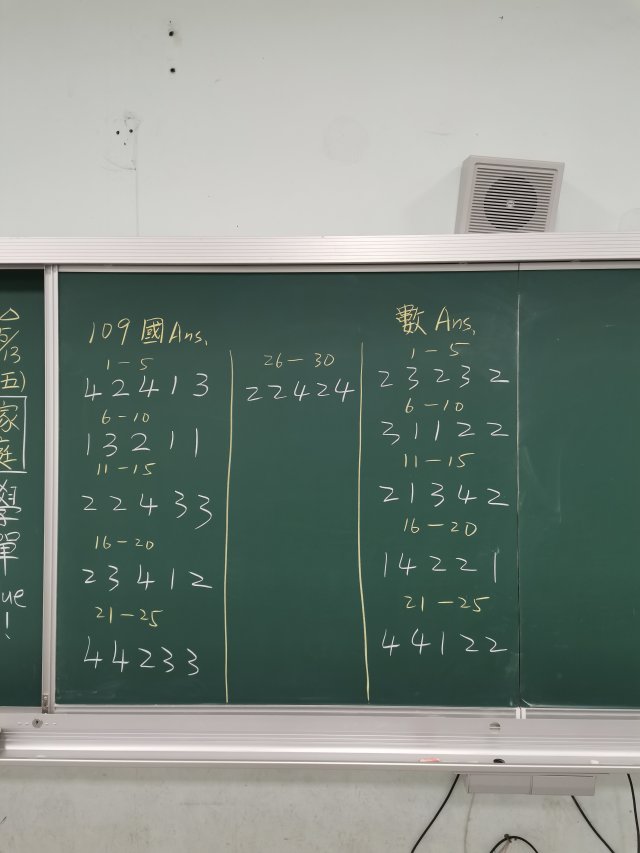 5/13
(五)
家
庭
單
109 國 Ans.
1-5
42413
6-10
13211
11-15
22433
16-20
23412
21-25
44233
26-30
22424
數 Ans.
1-5
23232
6-10
31122
11-15
21342
16-20
14221
21-25
44122